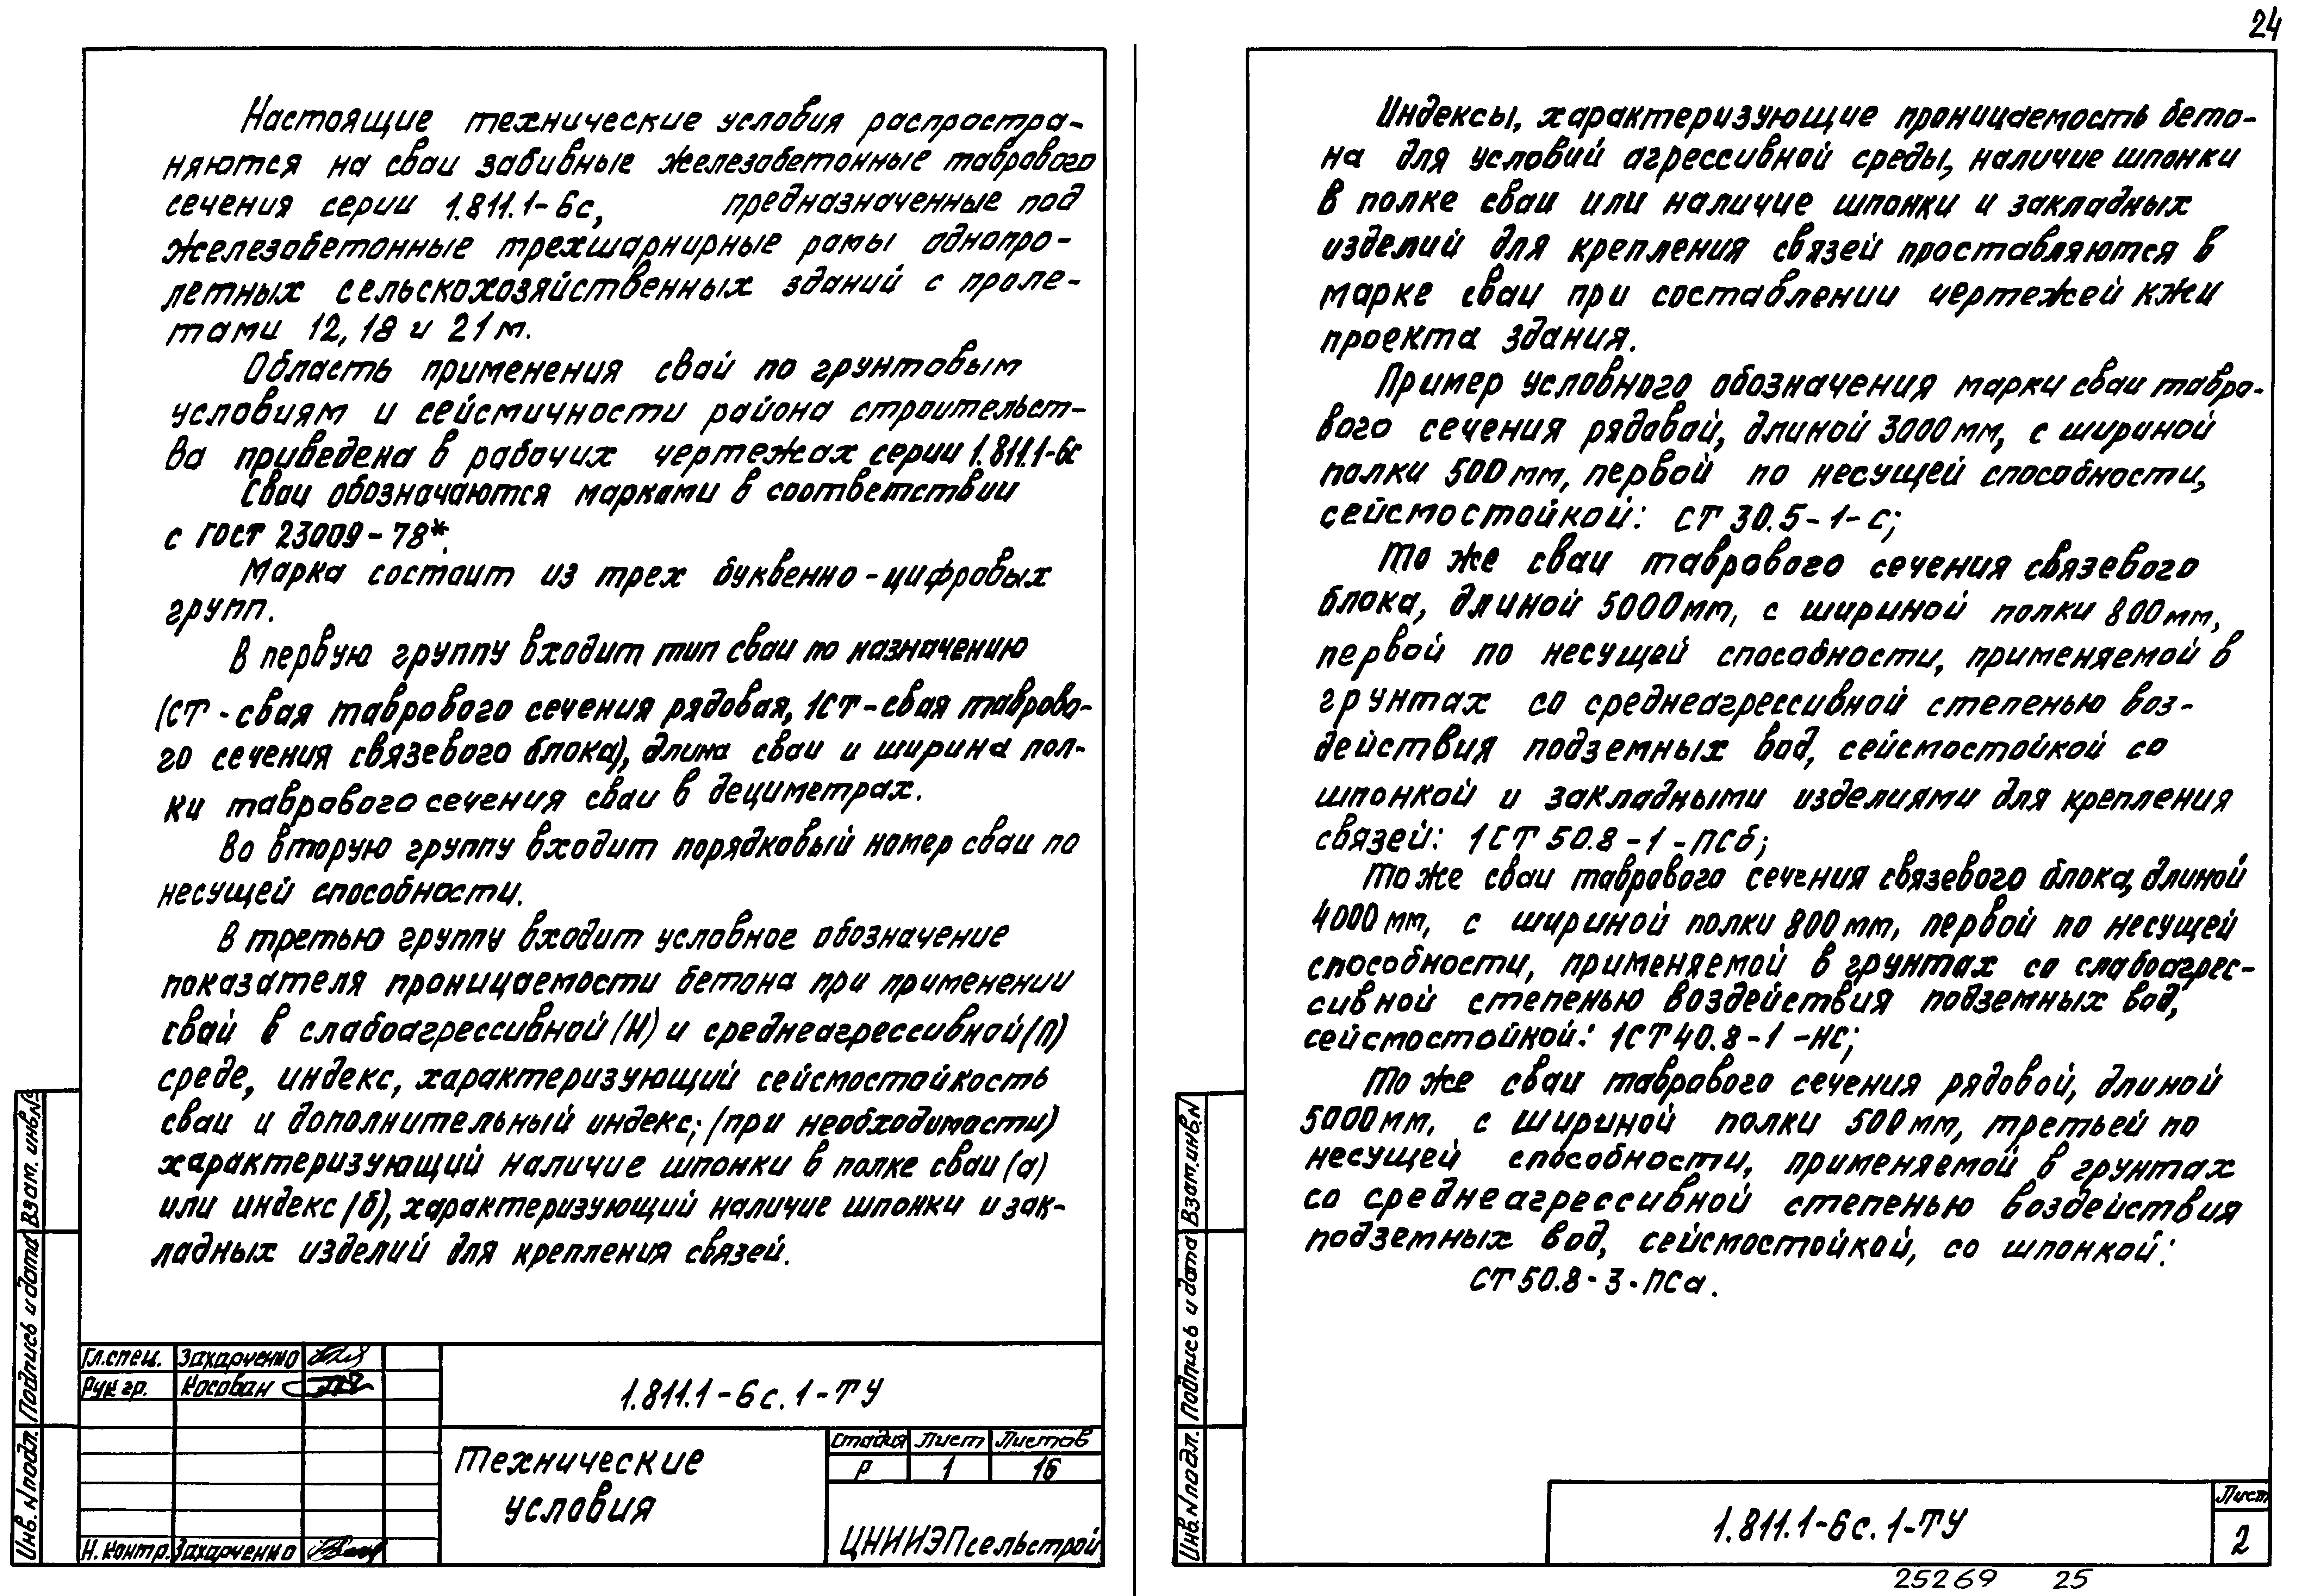 24
Настоящие технические условия распростра-
няются на сваи забивные железобетонные таврового
сечения серии 1.811.1-6с, предназначенные под
железобетонные трехшарнирные рамы однопро-
летных сельскохозяйственных зданий с проле-
тами 12, 18 и 21 м.
Область применения свай по грунтовым
условиям и сейсмичности района строительст-
ва приведена в рабочих чертежах серии 1.811.1-6с
Сваи обозначаются марками в соответствии
с ГОСТ 23009-78*.
Марка состоит из трех буквенно-цифровых
групп.
В первую группу входит тип сваи по назначению
(СТ - свая таврового сечения рядовая, 1СТ - свая таврово-
го сечения связевого блока), длина сваи и ширина пол-
ки таврового сечения сваи в дециметрах.
Во вторую группу входит порядковый номер сваи по
несущей способности.
В третью группу входит условное обозначение
показателя проницаемости бетона при применении
свай в слабоагрессивной (Н) и среднеагрессивной (П)
среде, индекс, характеризующий сейсмостойкость
сваи и дополнительный индекс; (при необходимости)
характеризующий наличие шпонки в полке сваи (а)
или индекс (б), характеризующий наличие шпонки и зак-
ладных изделий для крепления связей.
Гл.спец. Захарченко
Рук гр. Косован
Н. контр. Захарченко
1.811.1-6с.1-ТУ
Технические
условия
Стадия Лист Листов
Р 1 16
ЦНИИЭПсельстрой
Инв. N подл. Подпись и дата Взам. инв. N
Индексы, характеризующие проницаемость бето-
на для условий агрессивной среды, наличие шпонки
в полке сваи или наличие шпонки и закладных
изделий для крепления связей проставляются в
марке сваи при составлении чертежей кжи
проекта здания.
Пример условного обозначения марки сваи тавро-
вого сечения рядовой, длиной 3000 мм, с шириной
полки 500 мм, первой по несущей способности,
сейсмостойкой: СТ 30.5-1-С;
То же сваи таврового сечения связевого
блока, длиной 5000 мм, с шириной полки 800 мм,
первой по несущей способности, применяемой в
грунтах со среднеагрессивной степенью воз-
действия подземных вод, сейсмостойкой со
шпонкой и закладными изделиями для крепления
связей: 1СТ 50.8-1-ПСб;
То же сваи таврового сечения связевого блока, длиной
4000 мм, с шириной полки 800 мм, первой по несущей
способности, применяемой в грунтах со слабоагрес-
сивной степенью воздействия подземных вод,
сейсмостойкой: 1СТ 40.8-1-НС;
То же сваи таврового сечения рядовой, длиной
5000 мм, с шириной полки 500 мм, третьей по
несущей способности, применяемой в грунтах
со среднеагрессивной степенью воздействия
подземных вод, сейсмостойкой, со шпонкой:
СТ 50.8-3-ПСа.
Инв. N подл. Подпись и дата Взам. инв. N
1.811.1-6с.1-ТУ
Лист
2
25269 25